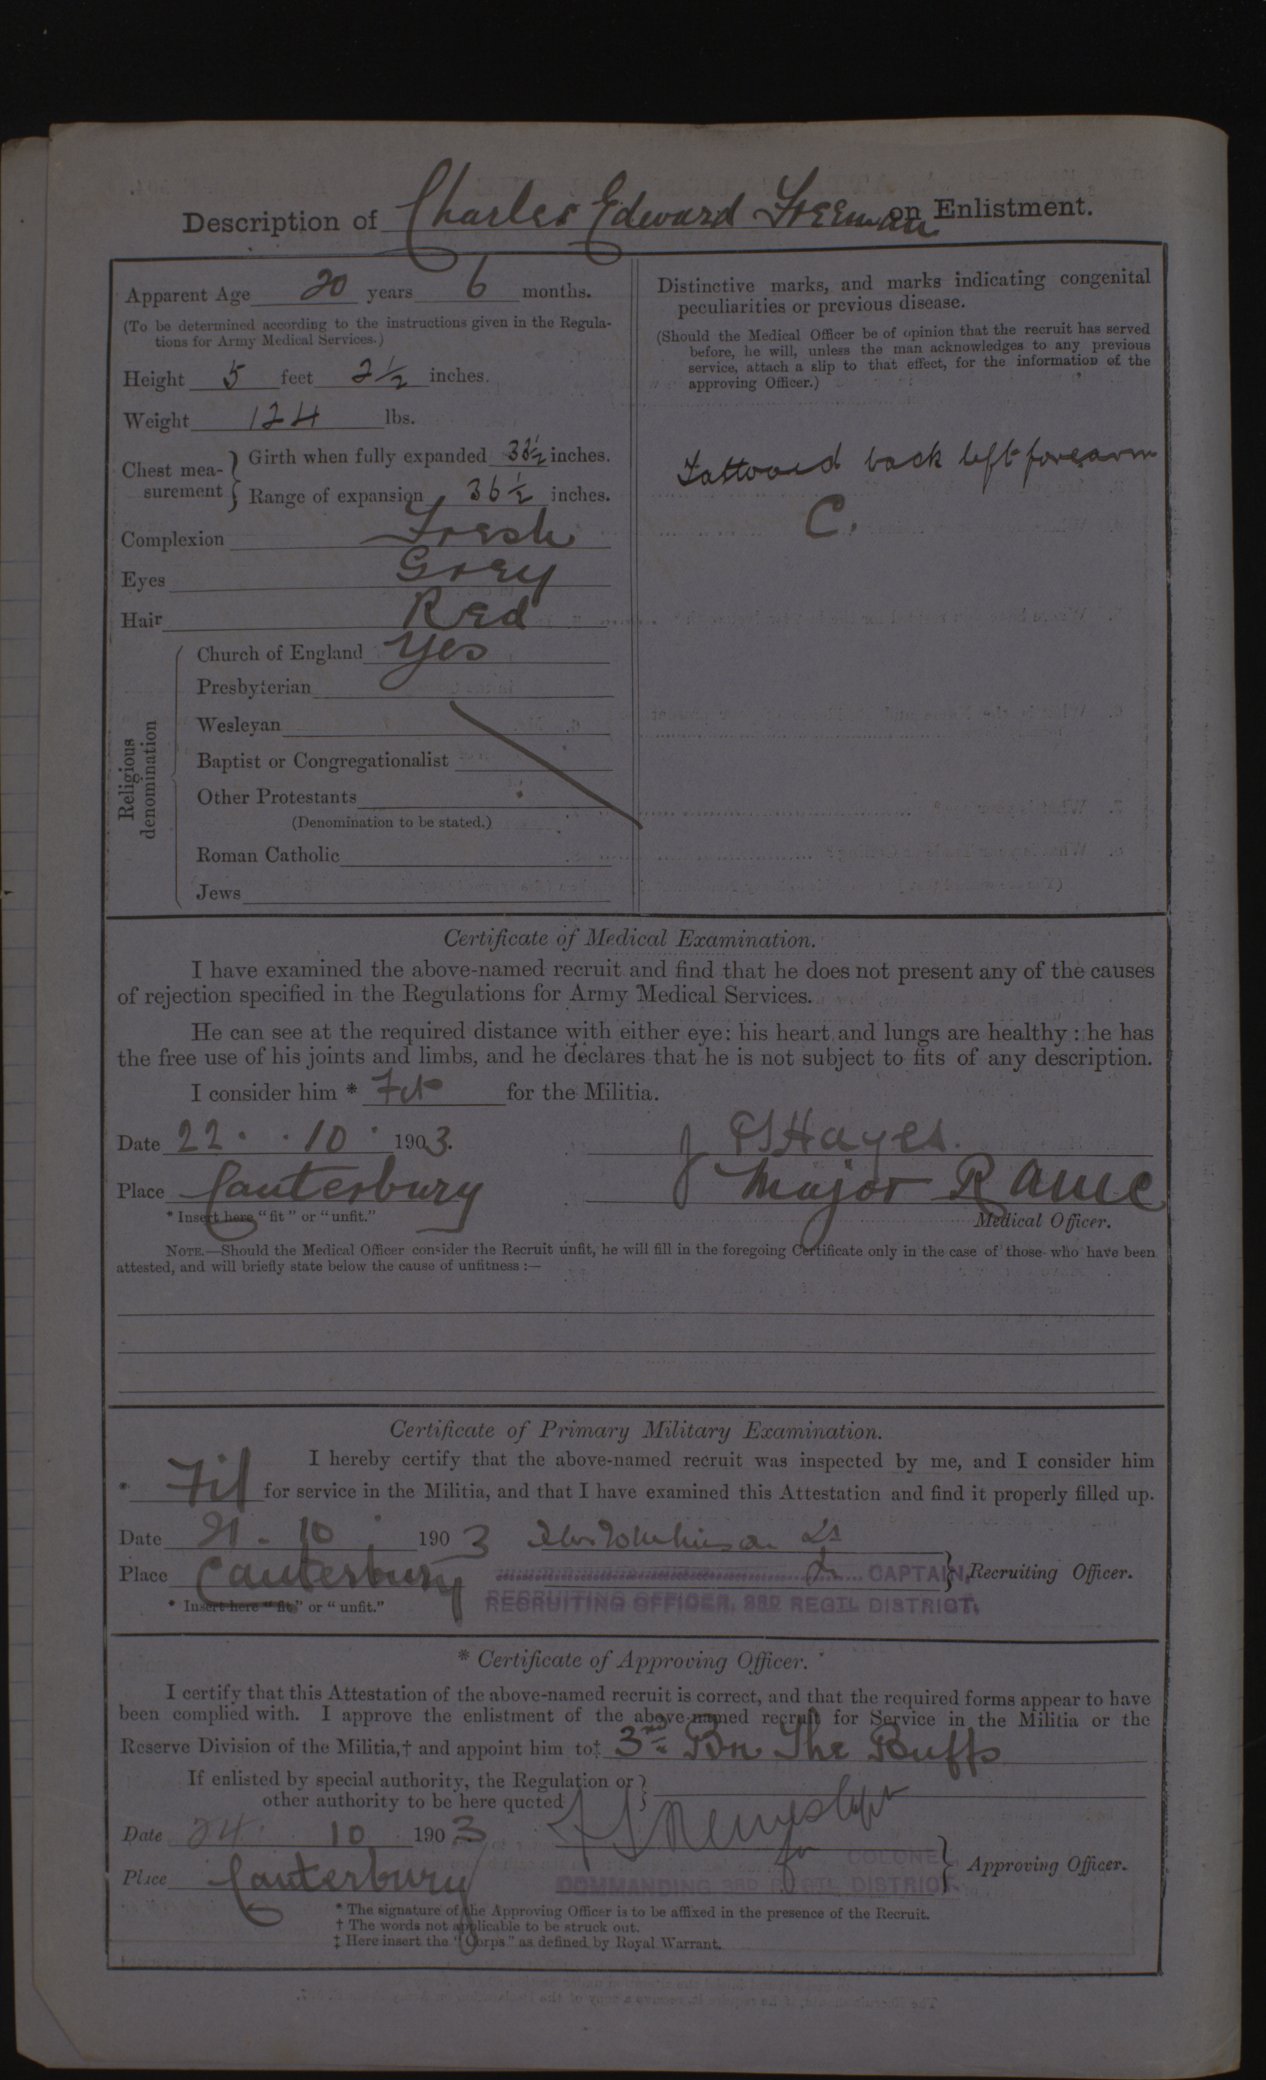 Description of Charles Edward Freeman on Enlistment.
Apparent Age 20 years 6 months.
(To be determined according to the instructions given in the Regula-
tions for Army Medical Services.)
Height 5 feet 2 1/2 inches.
Weight 124 lbs.
Chest mea-
surement
Girth when fully expanded 33 1/2 inches.
Range of expansion 36 1/2 inches.
Complexion Fresh
Eyes Grey
Hair Red
Religious
denomination
Church of England Yes
Presbyterian
Wesleyan
Baptist or Congregationalist
Other Protestants
(Denomination to be stated.)
Roman Catholic
Jews
Distinctive marks, and marks indicating congenital
peculiarities or previous disease.
(Should the Medical Officer be of opinion that the recruit has served
before, he will, unless the man acknowledges to any previous
service, attach a slip to that effect, for the information of the
approving Officer.)
Tattooed back left forearm
C.
Certificate of Medical Examination.
I have examined the above-named recruit and find that he does not present any of the causes
of rejection specified in the Regulations for Army Medical Services.
He can see at the required distance with either eye: his heart and lungs are healthy: he has
the free use of his joints and limbs, and he declares that he is not subject to fits of any description.
I consider him * Fit for the Militia.
Date 22 . . 10 . 1903.
Hayes.
Place Canterbury
Major RAMC
* Insert here "fit" or "unfit."
Medical Officer.
NOTE.—Should the Medical Officer consider the Recruit unfit, he will fill in the foregoing Certificate only in the case of those who have been
attested, and will briefly state below the cause of unfitness :—
Certificate of Primary Military Examination.
I hereby certify that the above-named recruit was inspected by me, and I consider him
* Fit for service in the Militia, and that I have examined this Attestation and find it properly filled up.
Date 21 . 10 1903
Place Canterbury
CAPTAIN,
Recruiting Officer.
* Insert here "fit" or "unfit."
RECRUITING OFFICER, 3RD REGTL DISTRICT.
* Certificate of Approving Officer.
I certify that this Attestation of the above-named recruit is correct, and that the required forms appear to have
been complied with. I approve the enlistment of the above-named recruit for Service in the Militia or the
Reserve Division of the Militia,† and appoint him to‡ 3rd Bn The Buffs
If enlisted by special authority, the Regulation or
other authority to be here quoted
Date 24 . 10 1903
for
COLONEL
Place Canterbury
COMMANDING 3RD REGTL DISTRICT.
Approving Officer.
* The signature of the Approving Officer is to be affixed in the presence of the Recruit.
† The words not applicable to be struck out.
‡ Here insert the "Corps" as defined by Royal Warrant.